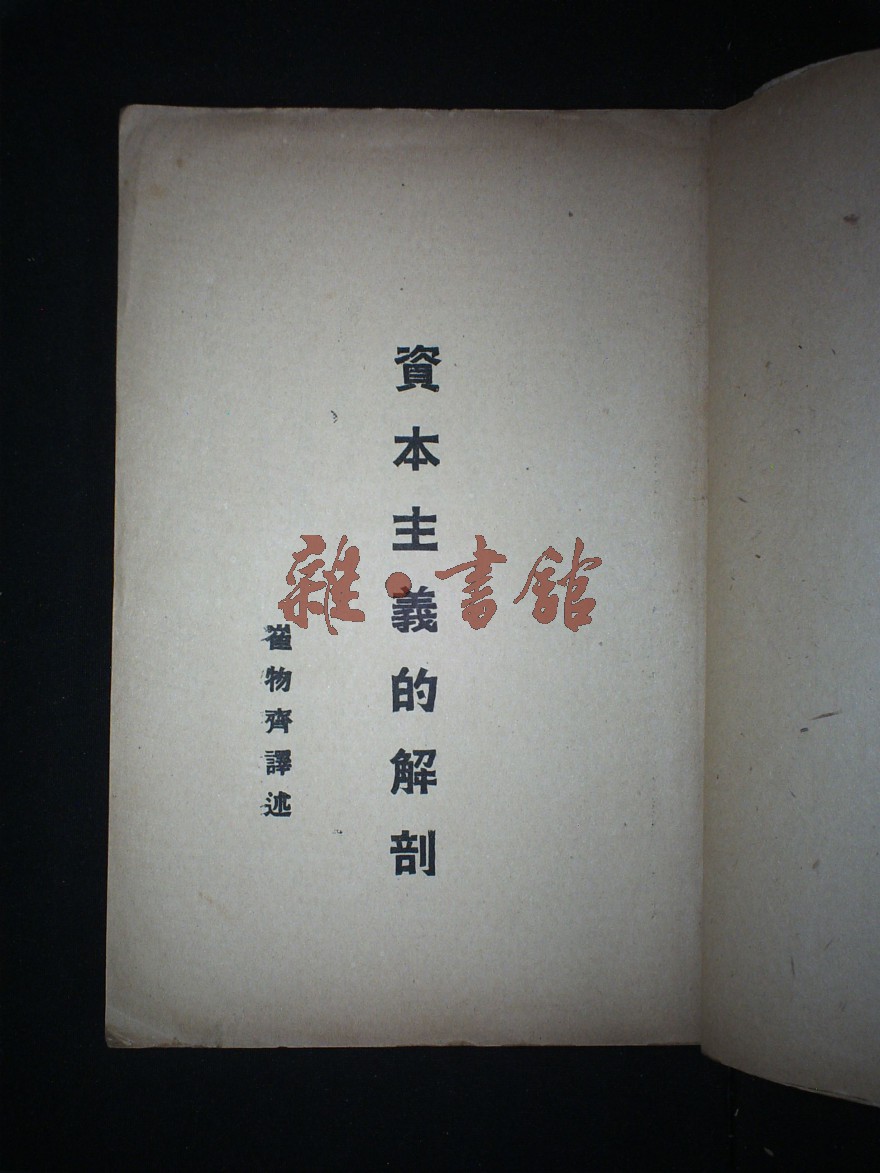 資本主義的解剖
崔物齊譯述
雜·書館